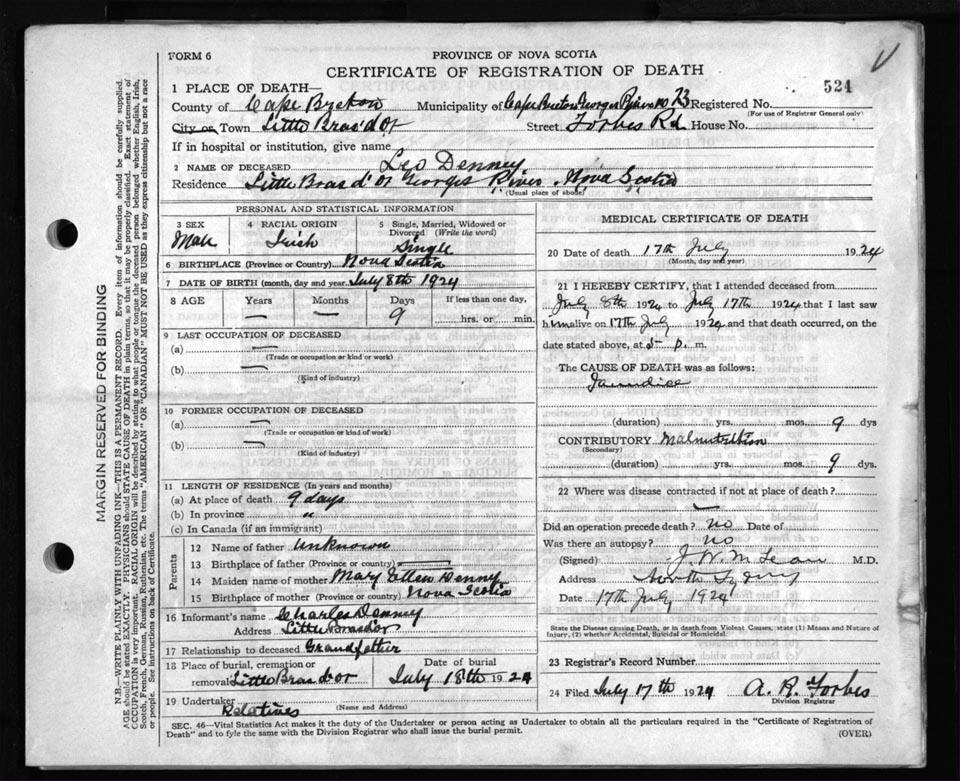 FORM 6
PROVINCE OF NOVA SCOTIA
CERTIFICATE OF REGISTRATION OF DEATH
524
1 PLACE OF DEATH—
County of Cape Breton Municipality of Cape Breton Georges River no 73 Registered No.
(For use of Registrar General only)
City or Town Little Bras d'or Street Forbes Rd House No.
If in hospital or institution, give name
2 NAME OF DECEASED Leo Denney
Residence Little Bras d' or Georges River, Nova Scotia
(Usual place of abode)
PERSONAL AND STATISTICAL INFORMATION
3 SEX Male
4 RACIAL ORIGIN Irish
5 Single, Married, Widowed or Divorced (Write the word) Single
6 BIRTHPLACE (Province or Country) Nova Scotia
7 DATE OF BIRTH (month, day and year) July 8th 1924
8 AGE Years — Months — Days 9 If less than one day, hrs. or min.
9 LAST OCCUPATION OF DECEASED
(a) —
(Trade or occupation or kind of work)
(b) —
(Kind of industry)
10 FORMER OCCUPATION OF DECEASED
(a) —
(Trade or occupation or kind of work)
(b) —
(Kind of industry)
11 LENGTH OF RESIDENCE (In years and months)
(a) At place of death 9 days
(b) In province "
(c) In Canada (if an immigrant)
Parents
12 Name of father Unknown
13 Birthplace of father (Province or country) —
14 Maiden name of mother Mary Ellen Denny
15 Birthplace of mother (Province or country) Nova Scotia
16 Informant's name Charles Denney
Address Little Brasdor
17 Relationship to deceased Grandfather
18 Place of burial, cremation or removal Little Bras dor Date of burial July 18th 1924
19 Undertaker Relatives
(Name and Address)
MEDICAL CERTIFICATE OF DEATH
20 Date of death 17th July 1924
(Month, day and year)
21 I HEREBY CERTIFY, that I attended deceased from
July 8th 1924 to July 17th 1924 that I last saw
him alive on 17th July 1924 and that death occurred, on the
date stated above, at 5 p. m.
The CAUSE OF DEATH was as follows:
Jaundice
(duration) yrs. mos. 9 dys
CONTRIBUTORY Malnutrition
(Secondary)
(duration) yrs. mos. 9 dys.
22 Where was disease contracted if not at place of death?
Did an operation precede death? no Date of
Was there an autopsy? no
(Signed) J. W. McLean M.D.
Address North Sydney
Date 17th July 1924
State the Disease causing Death, or in death from Violent Causes, state (1) Means and Nature of
Injury, (2) whether Accidental, Suicidal or Homicidal.
23 Registrar's Record Number
24 Filed July 17th 1924 A. R. Forbes
Division Registrar
SEC. 46—Vital Statistics Act makes it the duty of the Undertaker or person acting as Undertaker to obtain all the particulars required in the "Certificate of Registration of
Death" and to fyle the same with the Division Registrar who shall issue the burial permit.
(OVER)
MARGIN RESERVED FOR BINDING
N.B.—WRITE PLAINLY WITH UNFADING INK—THIS IS A PERMANENT RECORD. Every item of information should be carefully supplied.
AGE should be stated EXACTLY. PHYSICIANS should STATE CAUSE OF DEATH in plain terms, so that it may be properly classified. Exact statement of
OCCUPATION is very important. RACIAL ORIGIN will be described by stating to what people or tongue the deceased person belonged whether English, Irish,
Scotch, French, German, Russian, Ruthenian, etc. The terms "AMERICAN" OR "CANADIAN" MUST NOT BE USED as they express citizenship but not a race
or people. See instructions on back of Certificate.